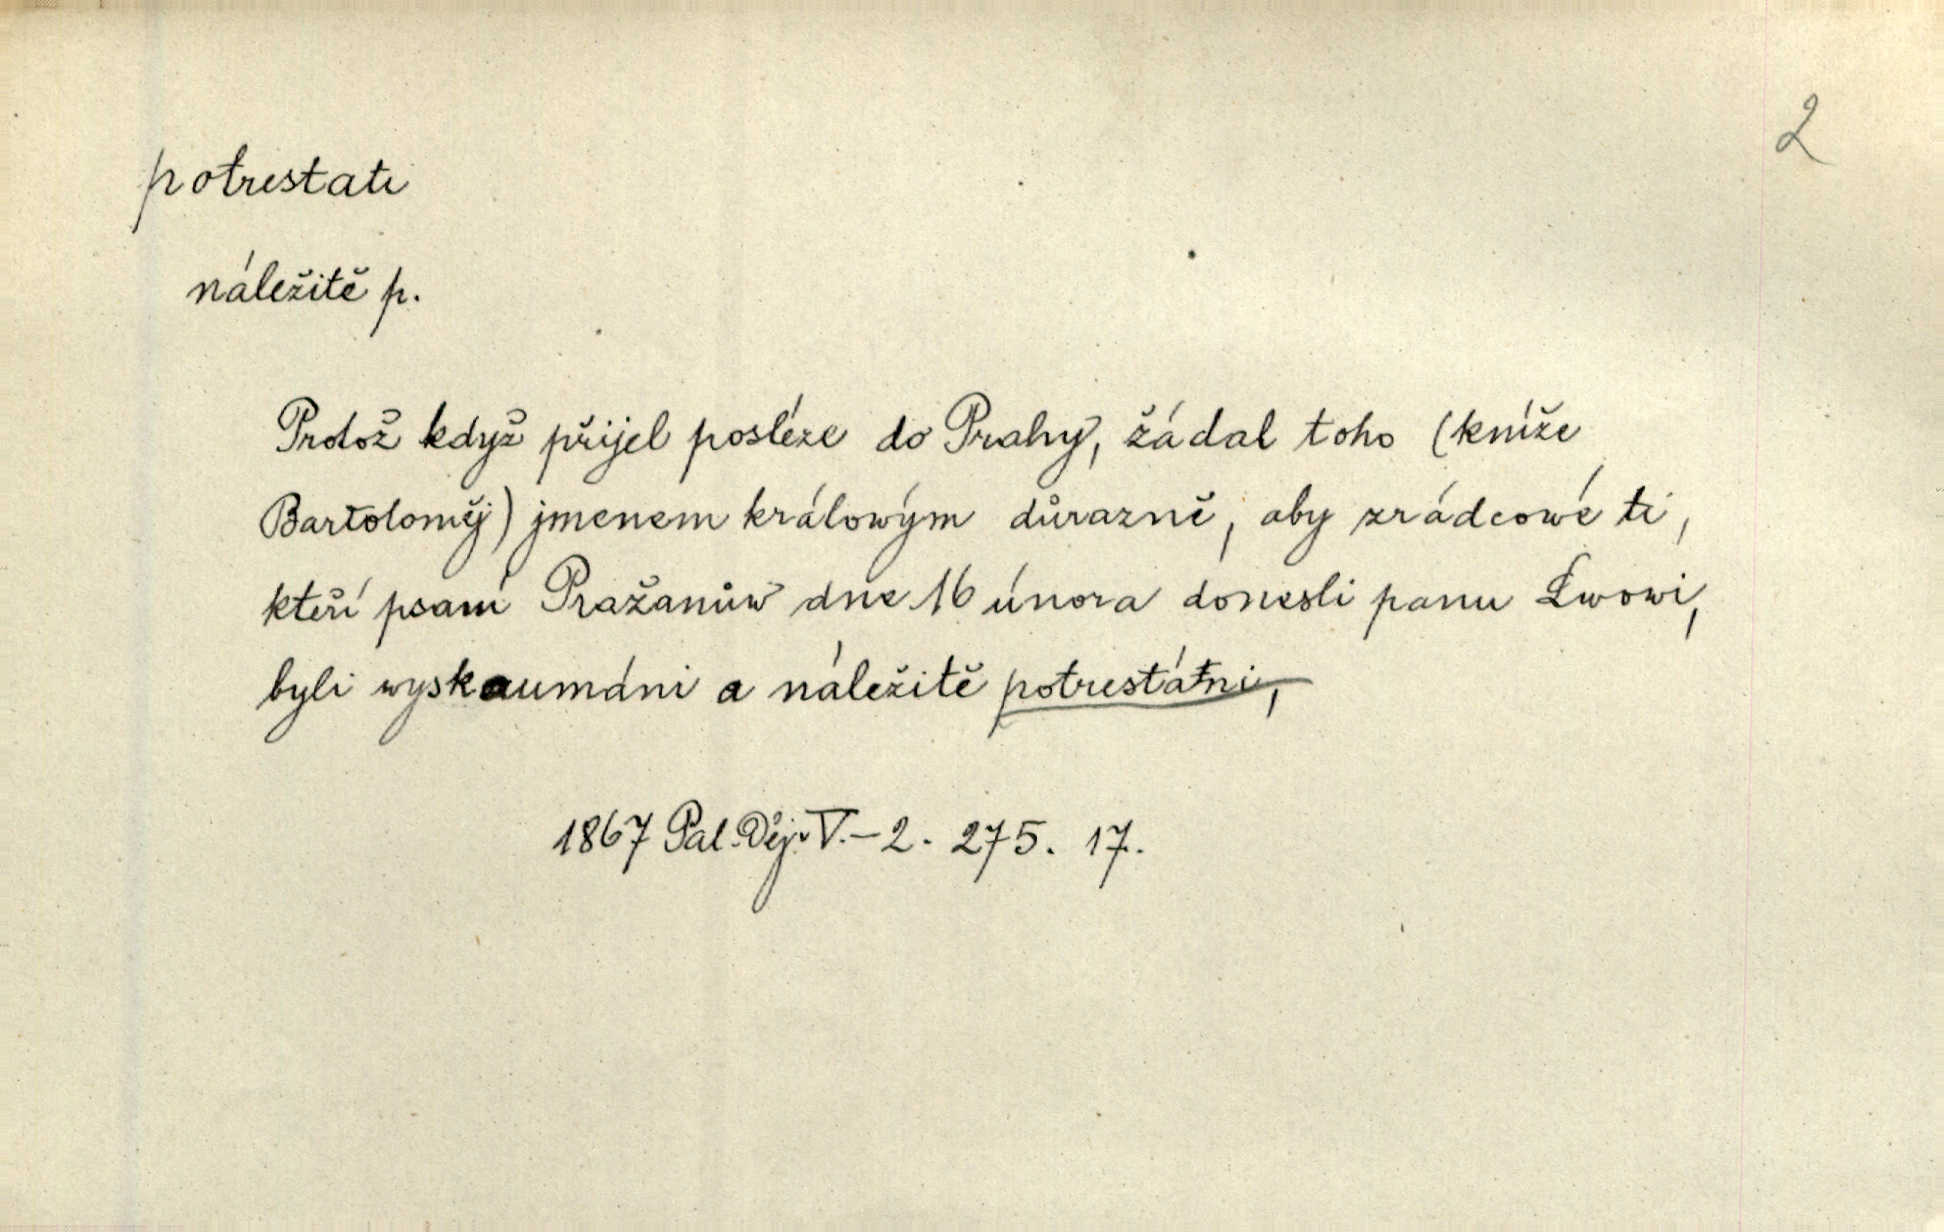 2
potrestati
náležitě p.
Protož když přijel posléze do Prahy, žádal toho (kníže
Bartoloměj) jmenem králowým důrazně, aby zrádcowé ti,
kteří psaní Pražanůw dne 16 února donesli panu Lwowi,
byli wyskaumáni a náležitě potrestátni,
1867 Pal. Děj. V.-2. 275. 17.